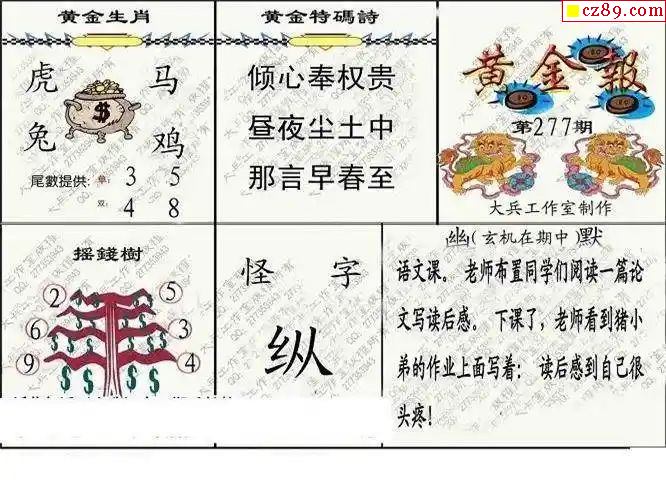 cz89.com
黄金生肖
虎 马
兔 鸡
$
尾數提供: 单: 3 5
双: 4 8
黄金特碼詩
倾心奉权贵
昼夜尘土中
那言早春至
黄金報
第277期
大兵工作室制作
摇錢樹
2 5
6 3
9 4
$ $ $ $ $ $ $ $
怪 字
纵
幽(玄机在期中)默
语文课。老师布置同学们阅读一篇论
文写读后感。下课了，老师看到猪小
弟的作业上面写着： 读后感到自己很
头疼!